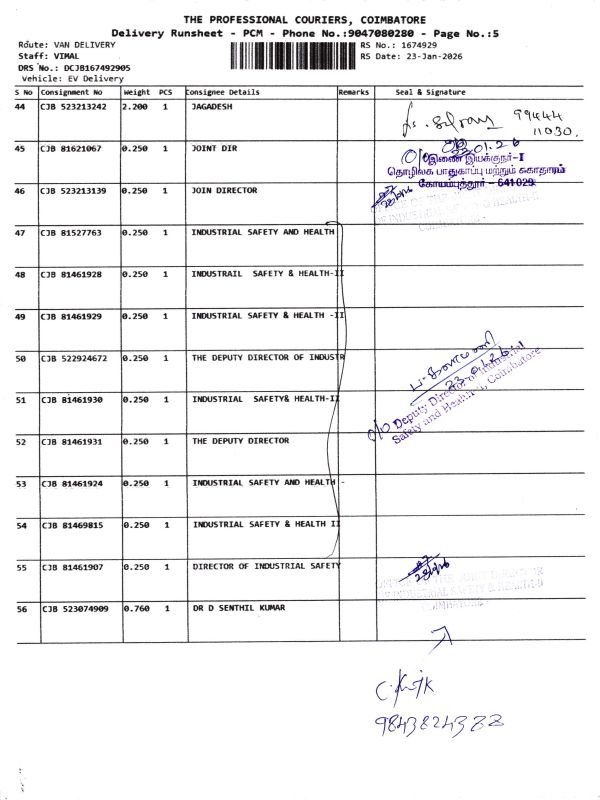 THE PROFESSIONAL COURIERS, COIMBATORE
Delivery Runsheet - PCM - Phone No.:9047080280 - Page No.:5
Route: VAN DELIVERY RS No.: 1674929
Staff: VIMAL RS Date: 23-Jan-2026
DRS No.: DCJB167492905
Vehicle: EV Delivery
S No Consignment No Weight PCS Consignee Details Remarks Seal & Signature
44 CJB 523213242 2.200 1 JAGADESH
99444
11030.
45 CJB 81621067 0.250 1 JOINT DIR
23.01.26
இணை இயக்குநர்-I
தொழிலக பாதுகாப்பு மற்றும் சுகாதாரம்
கோயம்புத்தூர் - 641029
46 CJB 523213139 0.250 1 JOIN DIRECTOR
OF INDUSTRIAL SAFETY & HEALTH-II
COIMBATORE -
47 CJB 81527763 0.250 1 INDUSTRIAL SAFETY AND HEALTH
48 CJB 81461928 0.250 1 INDUSTRAIL SAFETY & HEALTH-II
49 CJB 81461929 0.250 1 INDUSTRIAL SAFETY & HEALTH -II
50 CJB 522924672 0.250 1 THE DEPUTY DIRECTOR OF INDUSTR
23.01.26
51 CJB 81461930 0.250 1 INDUSTRIAL SAFETY& HEALTH-II
O/O Deputy Director of Industrial
Safety and Health, Coimbatore
52 CJB 81461931 0.250 1 THE DEPUTY DIRECTOR
53 CJB 81461924 0.250 1 INDUSTRIAL SAFETY AND HEALTH -
54 CJB 81469815 0.250 1 INDUSTRIAL SAFETY & HEALTH II
55 CJB 81461907 0.250 1 DIRECTOR OF INDUSTRIAL SAFETY
OFFICE OF THE JOINT DIRECTOR
OF INDUSTRIAL SAFETY & HEALTH-II
COIMBATORE -
56 CJB 523074909 0.760 1 DR D SENTHIL KUMAR